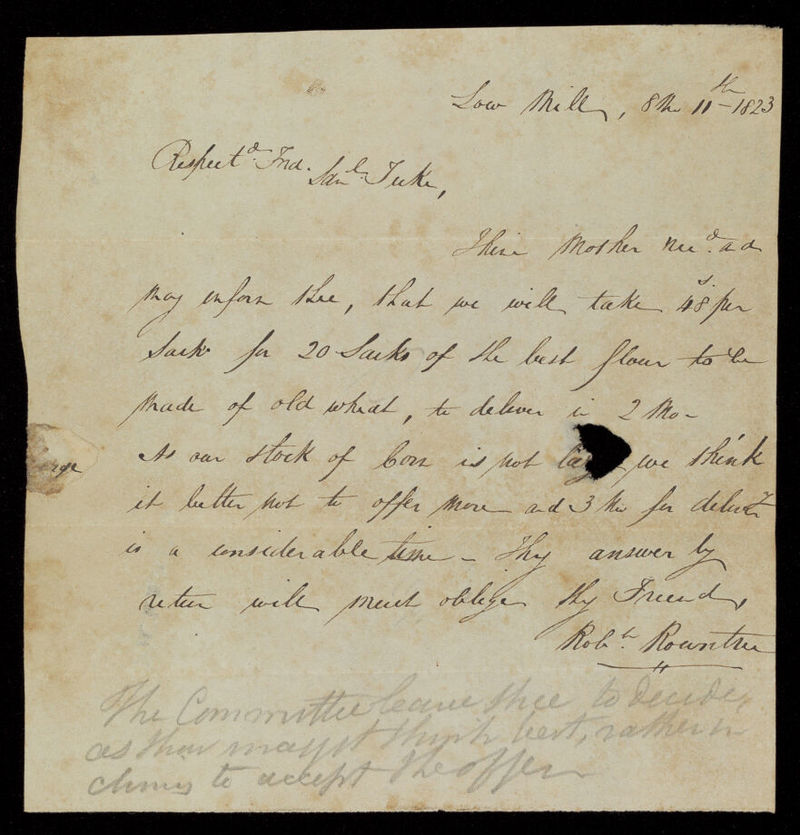 Low Mill, 8 Mo 11th - 1823
Respectd. Frd.
Saml. Tuke,
Thine Mother recd. and
may inform thee, that we will take 48s. per
Sack for 20 Sacks of the best flour to be
made of old wheat, to deliver in 2 Mo -
As our stock of Corn is not we think
it better not to offer more and 3 Mo for delivery
is a considerable time - Thy answer by
return will much oblige thy Friend,
Robt. Rowntree
The Committee leave thee to decide,
as thou mayst think best, rather in
clining to accept the offer